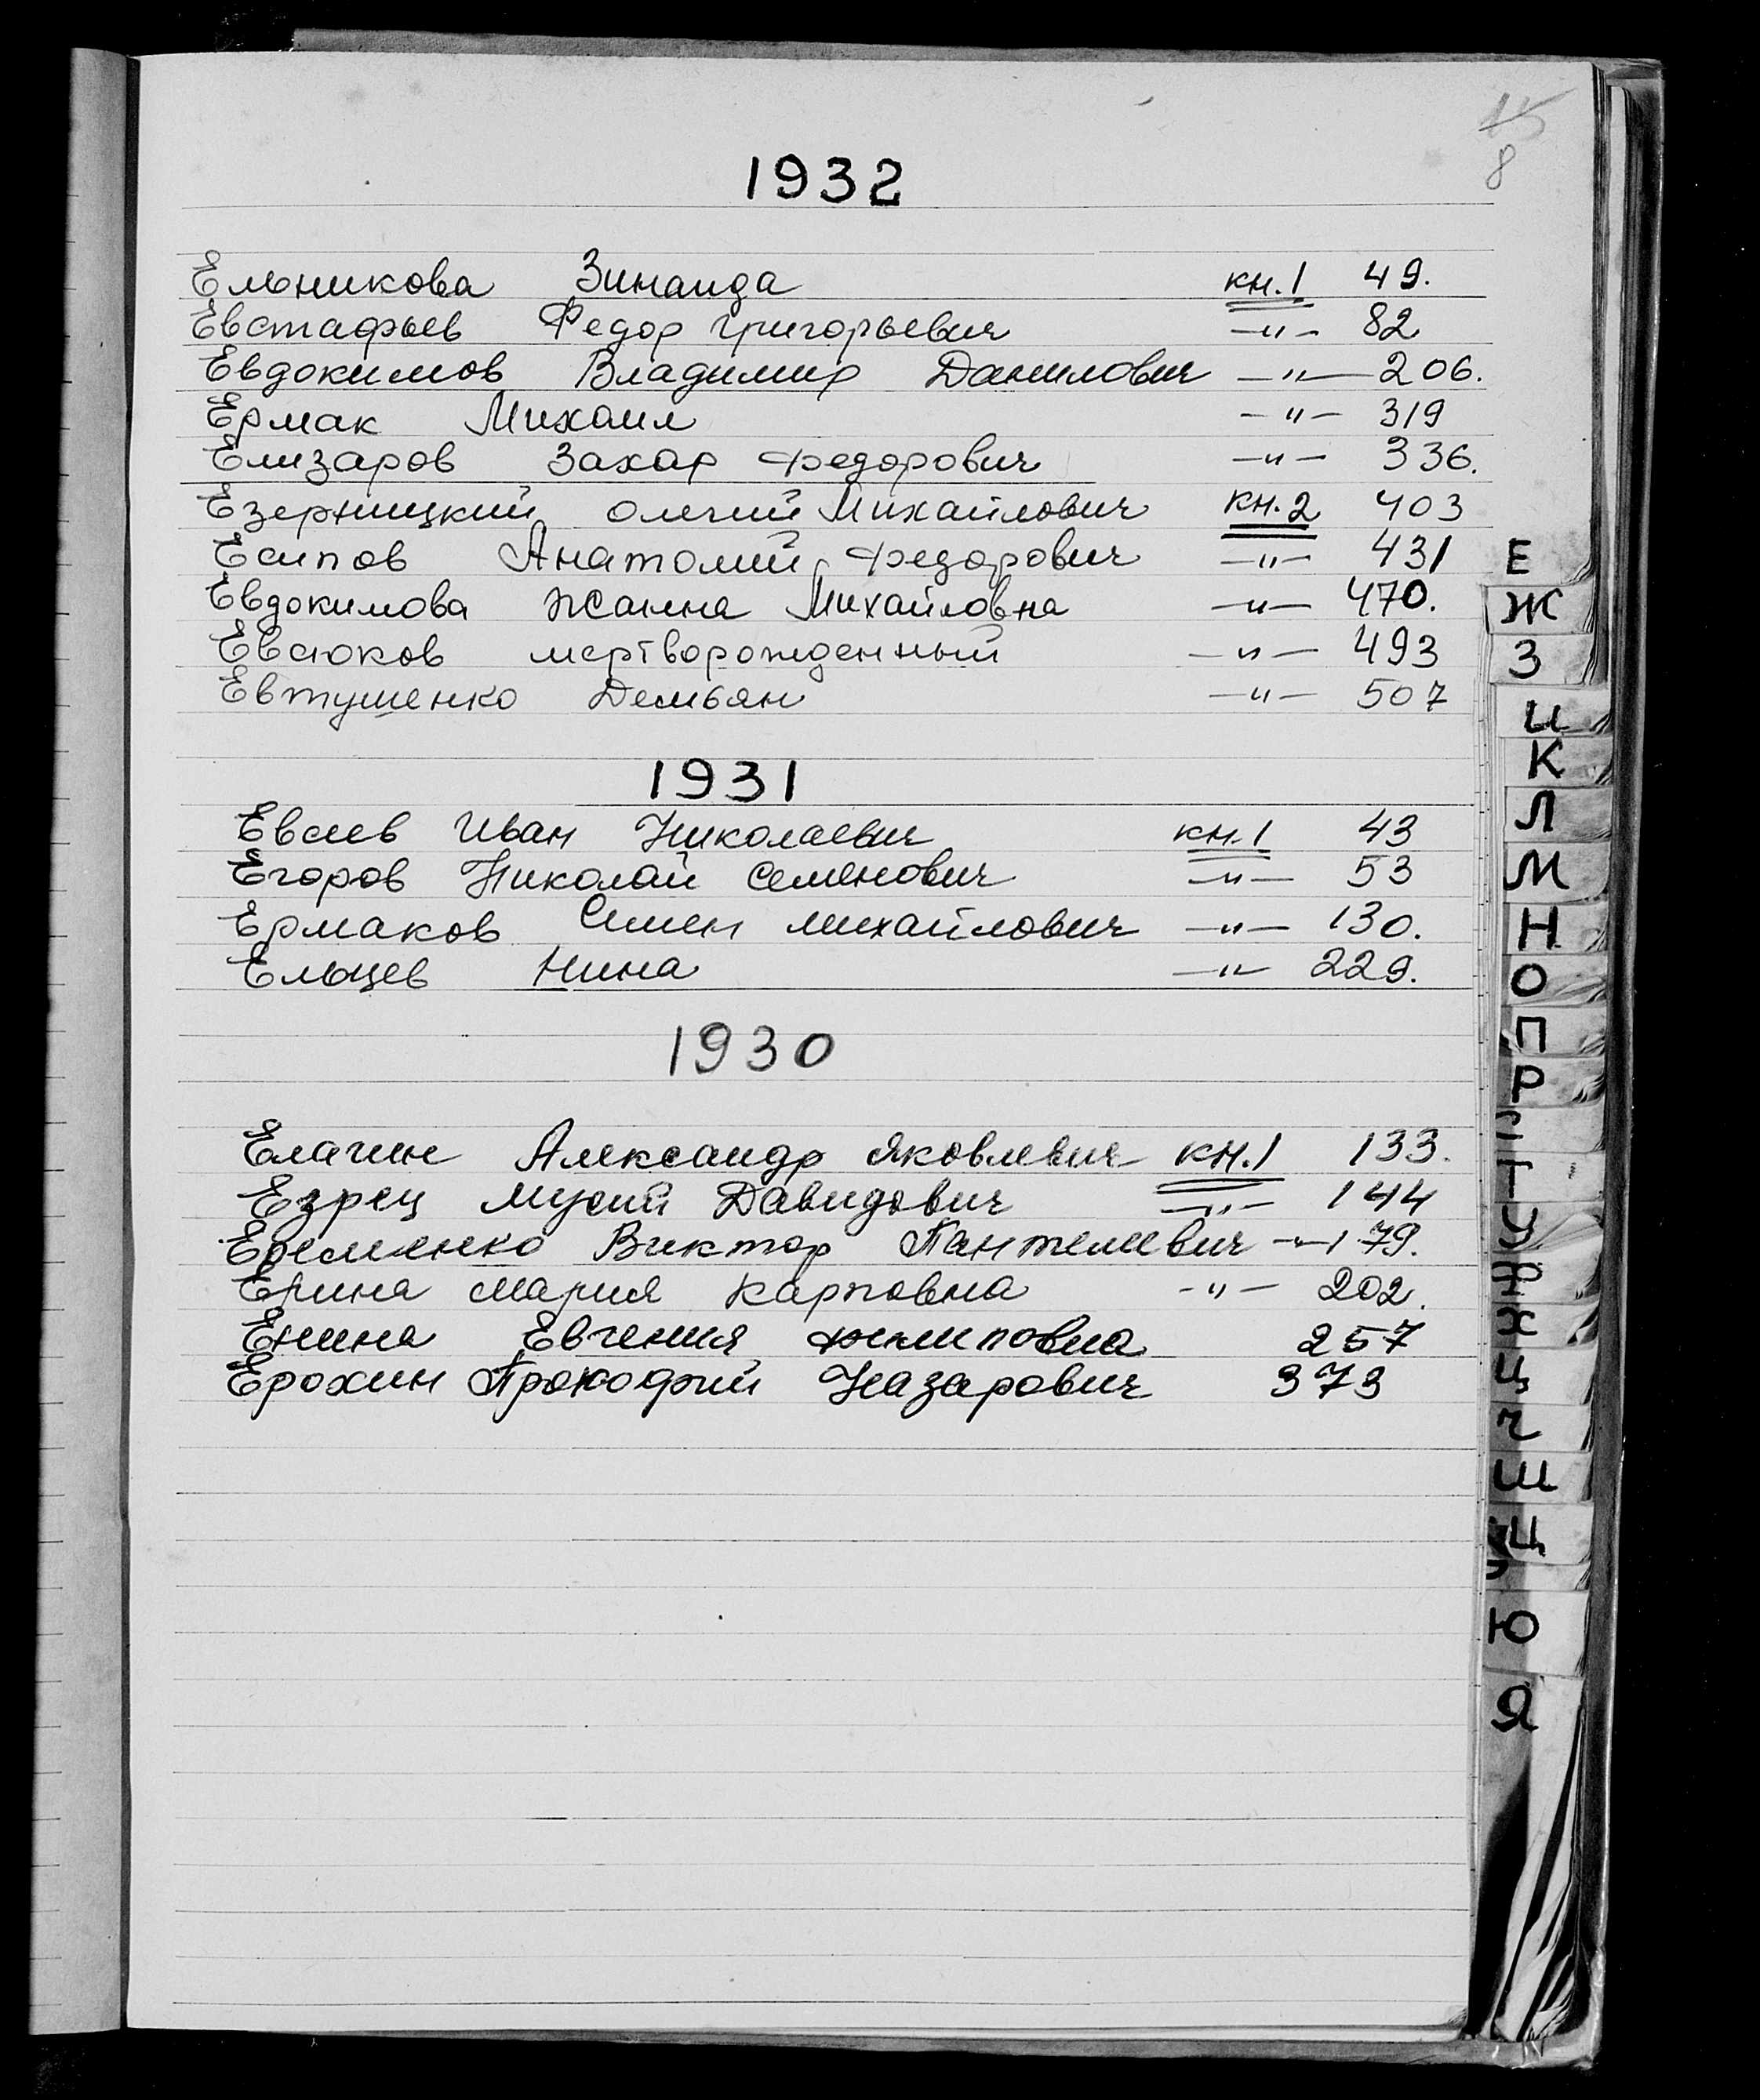 15
8
1932
Ельникова Зинаида кн.1 49.
Евстафьев Федор Григорьевич —"— 82
Евдокимов Владимир Данилович —"— 206.
Ермак Михаил —"— 319
Елизаров Захар Федорович —"— 336.
Езерницкий Михайлович кн.2 403
Есипов Анатолий Федорович —"— 431
Евдокимова Жанна Михайловна —"— 470.
Евсюков мертворожденный —"— 493
Евтушенко Демьян —"— 507
1931
Евсеев Иван Николаевич кн.1 43
Егоров Николай Семенович —"— 53
Ермаков Семен Михайлович —"— 130.
Ельцев Нина —"— 229.
1930
Елагин Александр Яковлевич кн.1 133.
Езрец Мусий Давидович —"— 144
Еременко Виктор Пантелеевич —"— 179.
Ерина Мария Карповна —"— 202.
Енина Евгения Филиповна 257
Ерохин Прокофий Назарович 373
Е
Ж
З
И
К
Л
М
Н
О
П
Р
Т
У
Ф
Х
Ц
Ч
Ш
Щ
Ю
Я